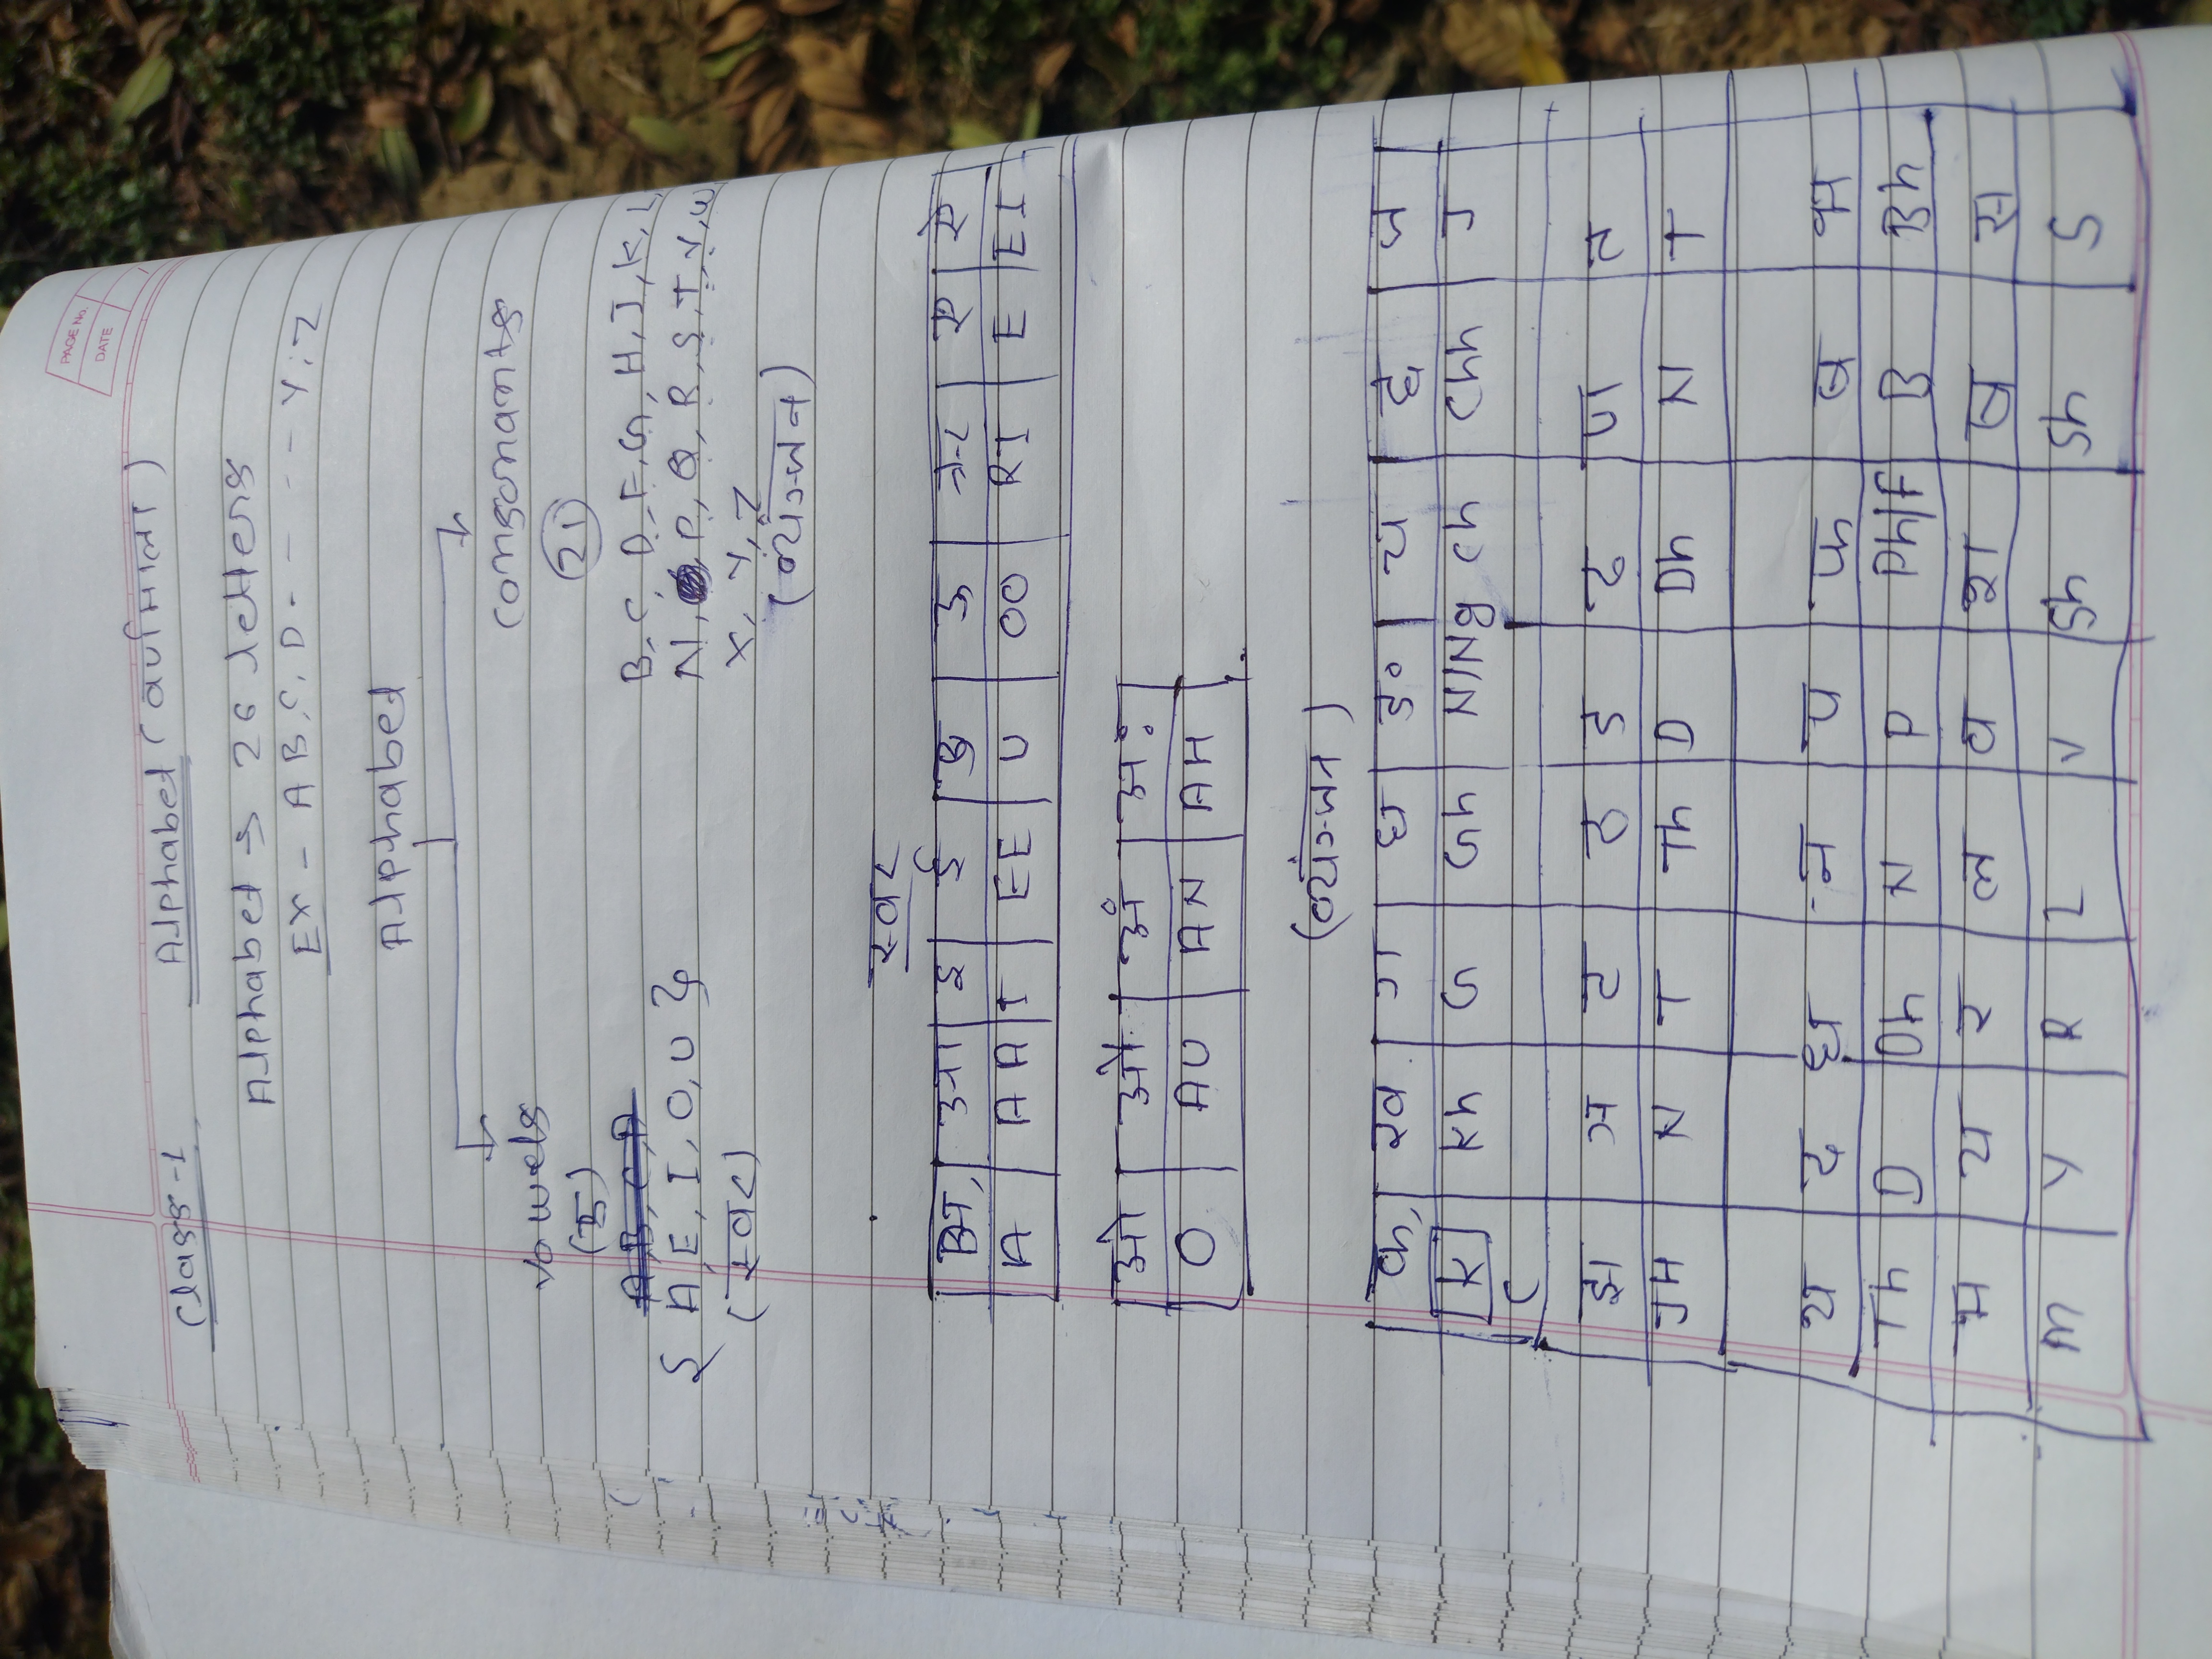 PAGE No.
DATE
Class-1 Alphabet (वर्णमाला)
Alphabet → 26 letters
Ex - A B, C, D - - - - - Y, Z
Alphabet
vowels consonants
(5) (21)
B, C, D, F, G, H, J, K, L,
{ A, E, I, O, U } N, P, Q, R, S, T, V, W
X, Y, Z
(स्वर) (व्यंञ्जन)
स्वर
अ, आ इ ई उ ऊ ऋ ए ऐ
A AA I EE U OO RI E EI
ओ औ अं अः
O AU AN AH
(व्यंञ्जन)
क, ख ग घ ङ च छ ज
K Kh G Gh N/Ng Ch Chh J
C
झ ञ ट ठ ड ढ ण त
JH N T Th D Dh N T
थ द ध न प फ ब भ
Th D Dh N P Ph/F B Bh
म य र ल व श ष स
m Y R L V Sh Sh S